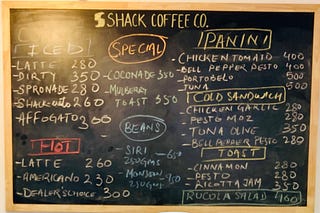 SHACK COFFEE CO.
ICED
- LATTE 280
- DIRTY 350
- SPRONADE 280
260
- AFFOGATO 300
HOT
- LATTE 260
- AMERICANO 230
- DEALER'S CHOICE 300
SPECIAL
- COCONADE 350
- MULBERRY
TOAST 350
BEANS
- SIRI
250GMS
- MONSOON
250GMS
PANINI
- CHICKEN TOMATO 400
- BELL PEPPER PESTO 400
- PORTOBELO 500
- TUNA 500
COLD SANDWICH
- CHICKEN GARLIC 280
- PESTO MOZ 280
- TUNA OLIVE 350
- BELL PEPPER PESTO 280
TOAST
- CINNAMON 280
- PESTO 280
- RICOTTA JAM 350
RUCOLA SALAD 400